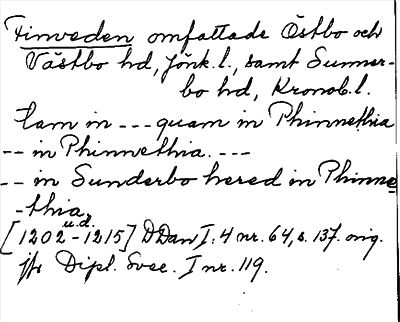 Finveden omfattade Östbo och
Västbo hd, Jönk.l., samt Sunner-
bo hd, Kronob.l.
tam in --- quam in Phinnethia
-- in Phinnethia. ---
-- in Sunderbo hered in Phinne
-thia,
u.d.
[1202-1215] DDan I:4 nr.64, s.137. orig.
jfr Dipl. Svec. I nr.119.